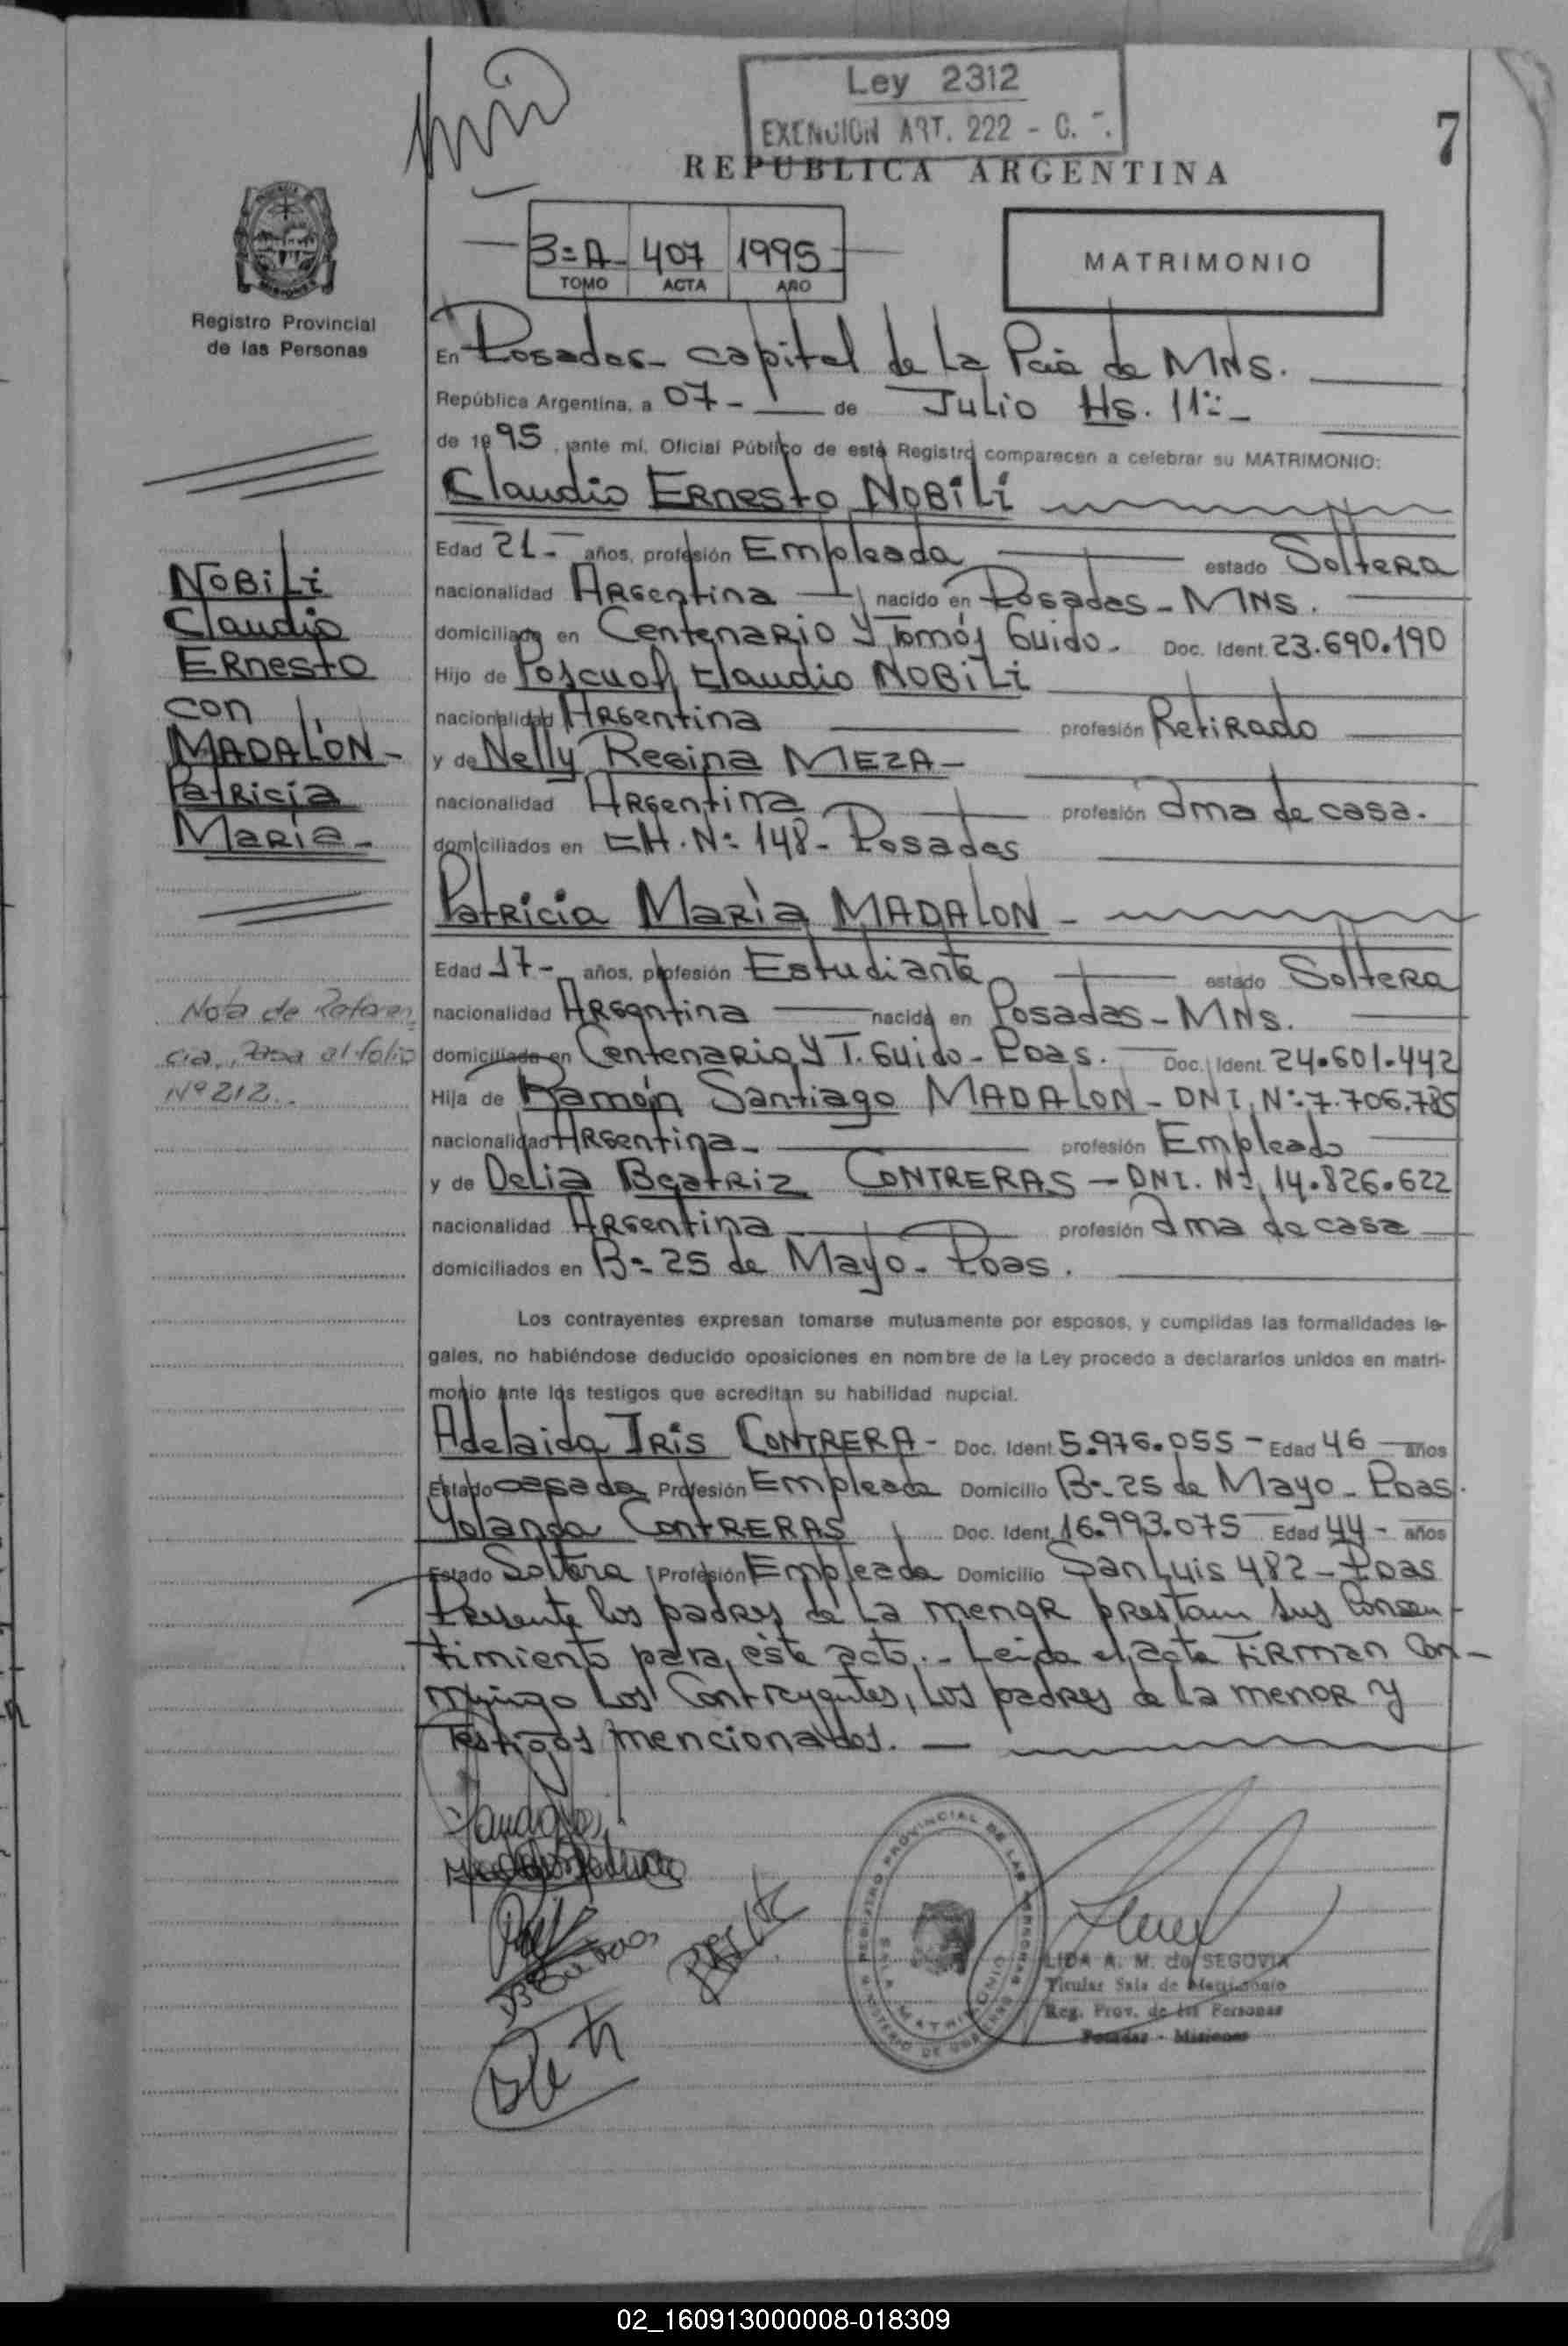 Ley 2312
EXENCION ART. 222 - C.
7
REPUBLICA ARGENTINA
3=A- 407 1995
TOMO ACTA AÑO
MATRIMONIO
Registro Provincial
de las Personas
En Posadas- capital de La Pcia de MNS.
República Argentina, a 07- de Julio Hs. 11:-
de 1995, ante mí, Oficial Público de este Registro comparecen a celebrar su MATRIMONIO:
Claudio Ernesto NOBILI
Edad 21- años, profesión Empleada estado Soltera
nacionalidad Argentina nacido en Posadas - MNS.
domiciliado en Centenario y Tomás Guido. Doc. Ident. 23.690.190
Hijo de Pascual Claudio NOBILI
nacionalidad Argentina profesión Retirado
y de Nelly Regina MEZA-
nacionalidad Argentina profesión Ama de casa.
domiciliados en CH. Nº 148- Posadas
NOBILI
Claudio
Ernesto
con
MADALON-
Patricia
María-
Patricia María MADALON-
Edad 17- años, profesión Estudiante estado Soltera
nacionalidad Argentina nacida en Posadas - MNS.
domiciliada en Centenario y T. Guido- Pdas. Doc. Ident. 24.601.442
Hija de Ramón Santiago MADALON- DNI, Nº 7.706.785
nacionalidad Argentina- profesión Empleado
y de Delia Beatriz CONTRERAS - DNI. Nº 14.826.622
nacionalidad Argentina profesión Ama de casa
domiciliados en Bº 25 de Mayo- Pdas.
Nota de Referen
cia, Pasa al folio
Nº 212.
Los contrayentes expresan tomarse mutuamente por esposos, y cumplidas las formalidades le-
gales, no habiéndose deducido oposiciones en nombre de la Ley procedo a declararlos unidos en matri-
monio ante los testigos que acreditan su habilidad nupcial.
Adelaida Iris CONTRERA- Doc. Ident. 5.976.055 - Edad 46 años
Estado casada Profesión Empleada Domicilio Bº 25 de Mayo- Pdas.
Yolanda CONTRERAS Doc. Ident. 16.993.075 Edad 44- años
Estado Soltera Profesión Empleada Domicilio San Luis 482 - Pdas
Presente los padres de La menor prestan sus Consen-
timiento para éste acto.- Leida el acta Firman Con-
migo Los Contrayentes, Los padres de La menor y
Testigos mencionados.-
REGISTRO PROVINCIAL DE LAS PERSONAS
MINISTERIO DE GOBIERNO
MATRIMONIO
LIDA A. M. de SEGOVIA
Titular Sala de Matrimonio
Reg. Prov. de las Personas
Posadas - Misiones
02_160913000008-018309